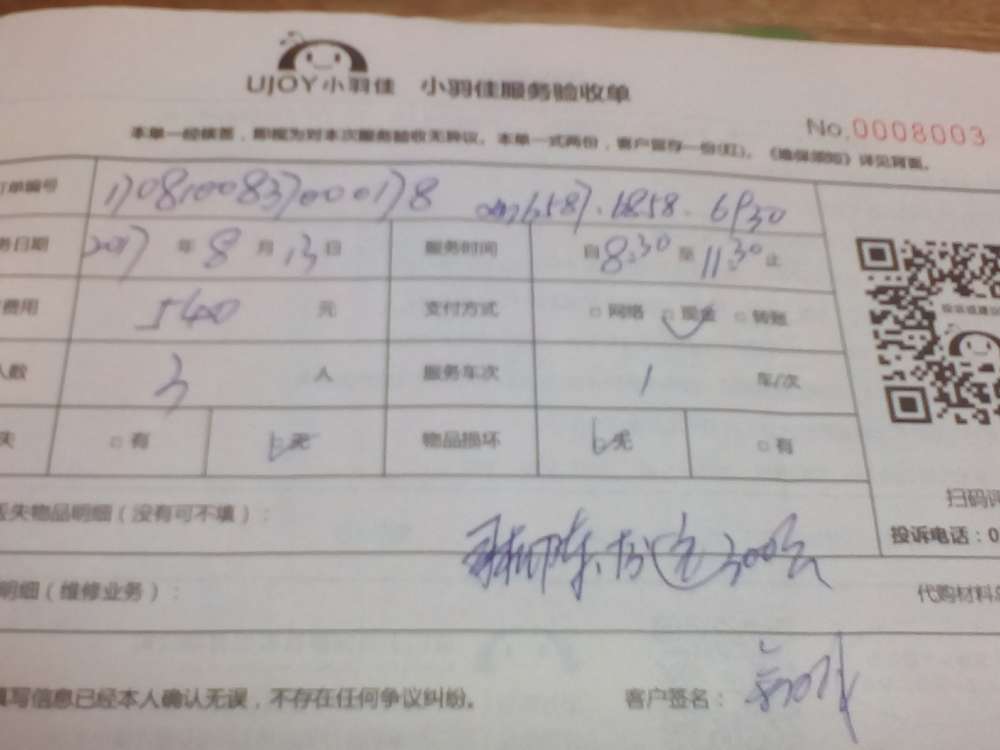 UJOY小羽佳 小羽佳服务验收单
No.0008003
本单一经核签，即视为对本次服务验收无异议。本单一式两份，客户留存一份(红)。《维保须知》详见背面。
单编号 17081008370000178
务日期 2017 年 8 月 13 日 服务时间 自 8:30 至 11:30 止
费用 5400 元 支付方式 □网络 □现金 □转账
人数 3 人 服务车次 1 车/次
失 □有 □无 物品损坏 □无 □有
失物品明细（没有可不填）：
扫码
投诉电话：0
明细（维修业务）：
代购材料
填写信息已经本人确认无误，不存在任何争议纠纷。 客户签名：